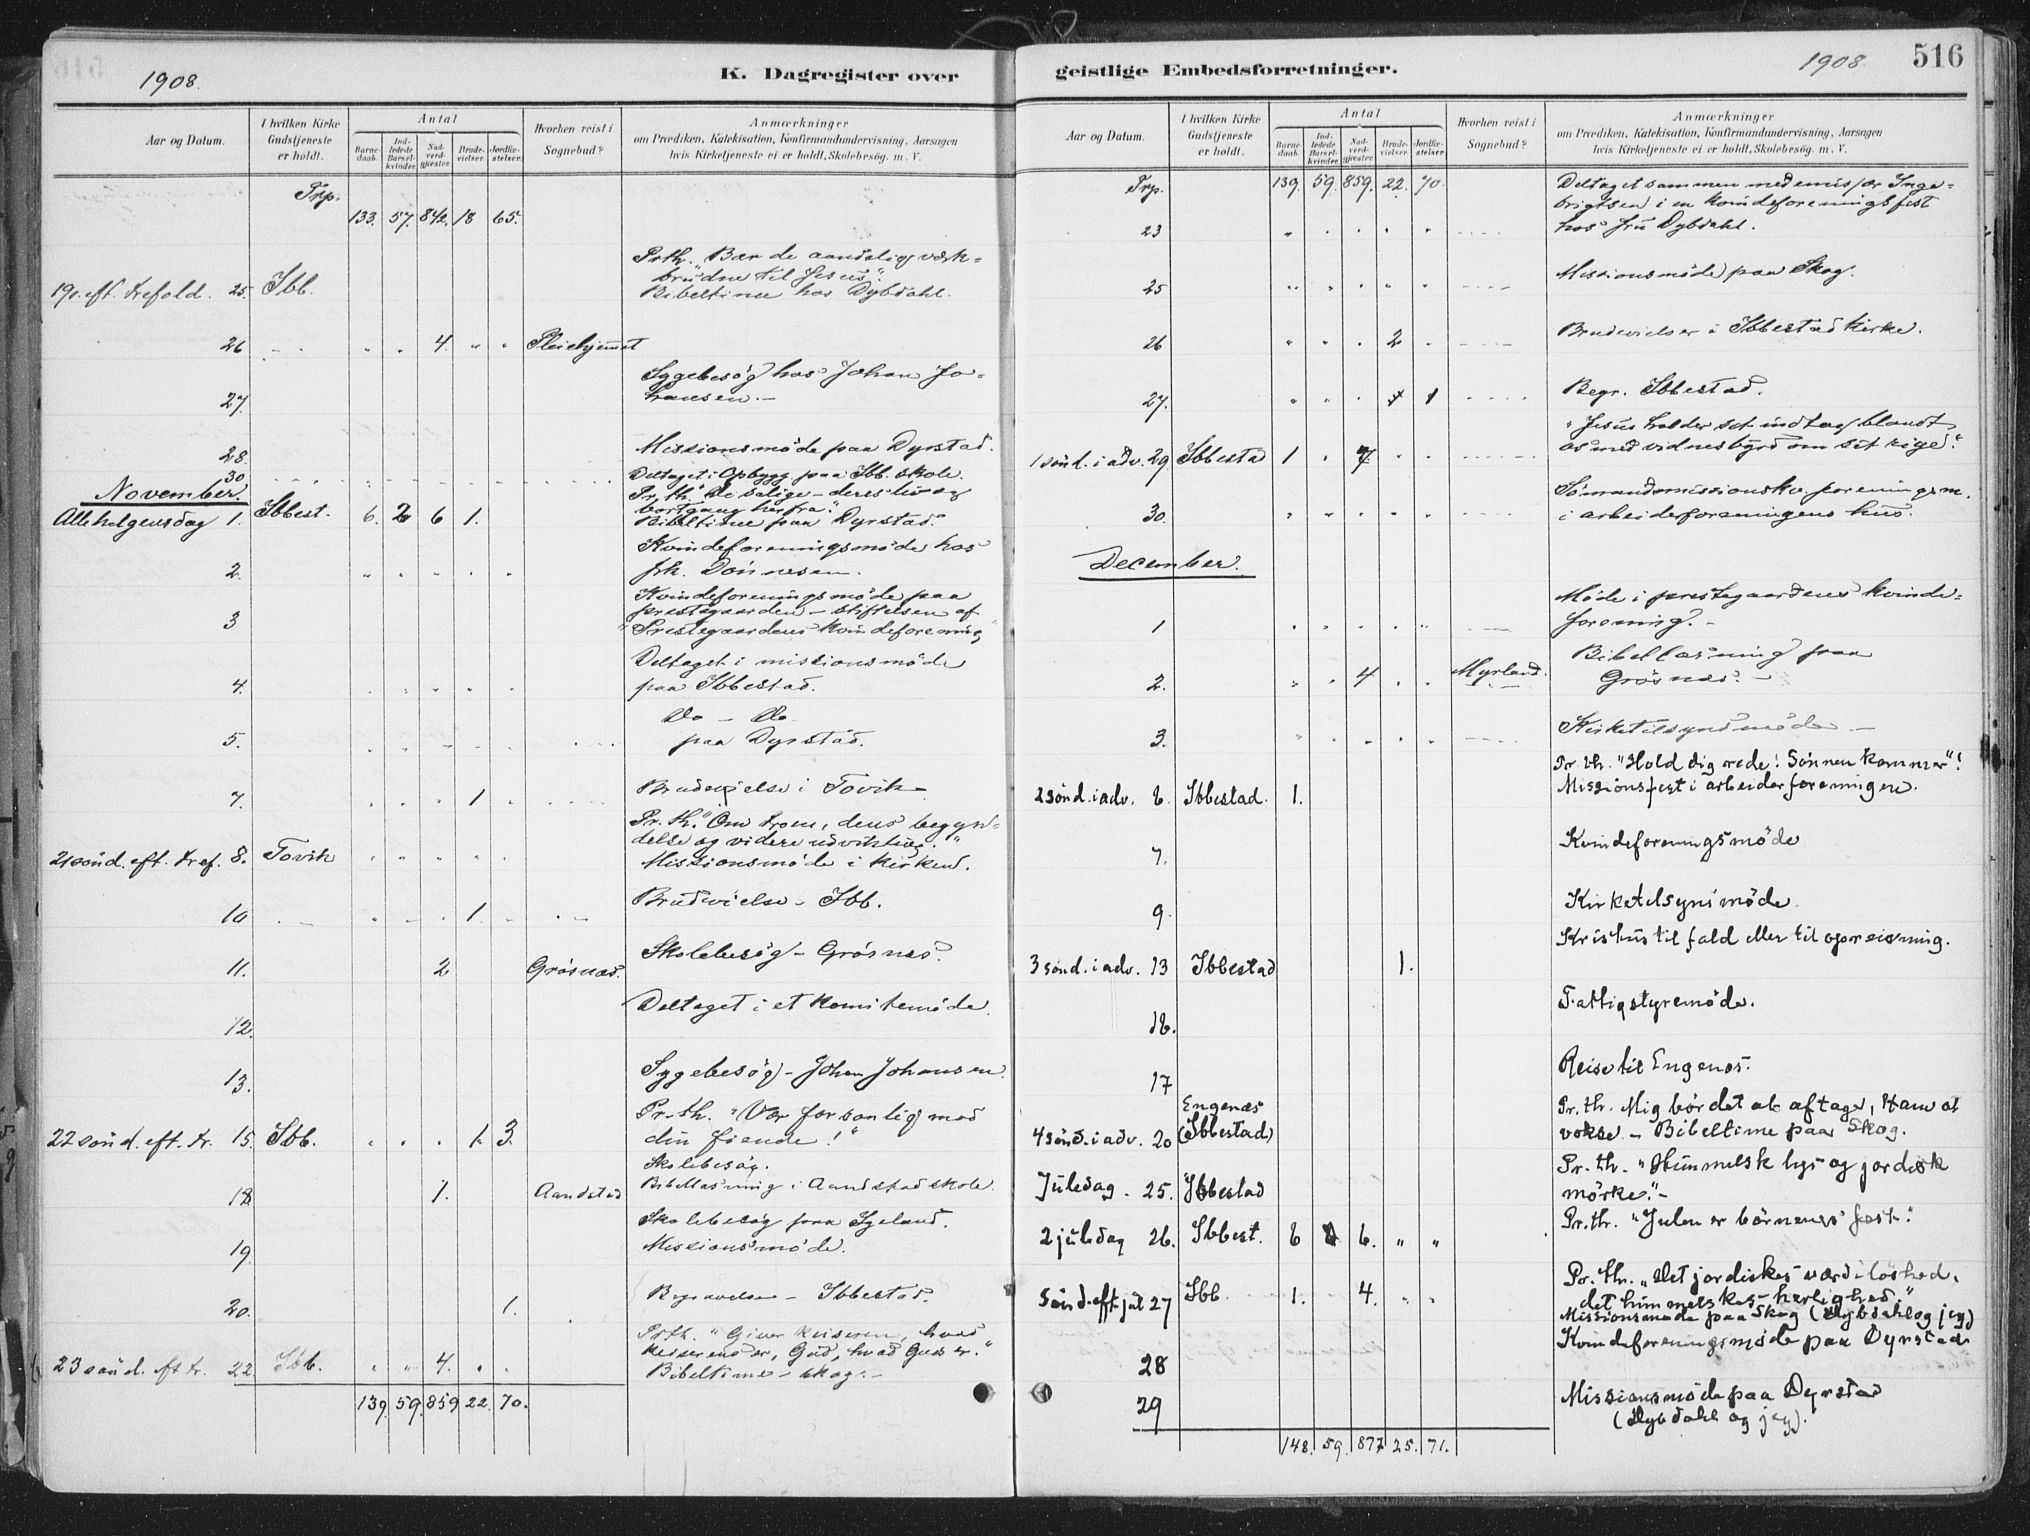 1908.
K. Dagregister over
Aar og Datum.
I hvilken Kirke Gudstjeneste er holdt.
Antal
Barnedaab.
Indledede Barselkvinder.
Nadverdgjester.
Brudevielser.
Jordfæstelser.
Hvorhen reist i Sognebud?
Anmærkninger
om Prædiken, Katekisation, Konfirmandundervisning, Aarsagen
hvis Kirketjeneste ei er holdt, Skolebesøg. m. V.
Trp. 133. 57. 842. 18 65.
Prth. Bær de aandelig værk-
brudne til Jesus".
19 s. eft. trefold. 25. Ibb. Bibeltime hos Dybdahl.
26 " " 4. " " Pleiehjemmet
Sygebesøg hos Johan Jo-
27. hansen.-
28. Missionsmøde paa Dyrstad.
30 Deltaget i Opbygg paa Ibb. skole.
November.
Pr. th. "De salige - deres liv og
bortgang herfra".
Allehelgensdag 1. Ibbest. 6. 2 6 1. Bibeltime paa Dyrstad.
Kvindeforeningsmøde hos
2. " " " " " frk. Dønnesen.
Kvindeforeningsmøde paa
prestegaarden - stiftelsen af
3 "Prestegaardens kvindeforening"
Deltaget i missionsmøde
4. " " " " " paa Ibbestad.
Do - Do
5. " " " " " paa Dyrstad.
7. " " " 1 " Brudevielse i Tovik
Pr. th. "Om troen, dens begyn-
delse og videre udvikling."
21 sønd. eft. tref. 8. Tovik " " " " " Missionsmøde i kirken.
10 " " " 1. " Brudevielse - Ibb.
11. 2 Grøsnæs. Skolebesøg - Grøsnæs.
12. Deltaget i et komitemøde.
13. Sygebesøg - Johan Johansen.
Pr. th. "Vær forsonlig mod
22 sønd. eft. tr. 15. Ibb. " " " 1. 3. din fiende!"
Skolebesøg.
18 1. Aandstad Bibellæsning i Aandstad skole.
Skolebesøg paa Igeland.
19. Missionsmøde.
20. 1. Begravelse - Ibbestad.
Prth. "Giver keiseren, hvad
keiserens er, Gud, hvad Guds er."
23 sønd. eft tr. 22. Ibb. " " 4. " " Bibeltime - Skog.-
139. 59. 859 22. 70.
geistlige Embedsforretninger.
1908. 516
Aar og Datum.
I hvilken Kirke Gudstjeneste er holdt.
Antal
Barnedaab.
Indledede Barselkvinder.
Nadverdgjester.
Brudevielser.
Jordfæstelser.
Hvorhen reist i Sognebud?
Anmærkninger
om Prædiken, Katekisation, Konfirmandundervisning, Aarsagen
hvis Kirketjeneste ei er holdt, Skolebesøg. m. V.
Trp. 139. 59. 859. 22. 70. Deltaget sammen med emissær Inge-
brigtsen i en kvindeforeningsfest
23 " " " " " hos fru Dybdahl.
25 " " " " " Missionsmøde paa Skog.
26 " " " 2 " Brudevielser i Ibbestad kirke.
27. " " " 1 1 Begr. Ibbestad.
"Jesus holder sit indtog blandt
1 sønd. i adv. 29. Ibbestad 1 " 7 " " os med vidnesbyrd om sit rige".
Sømandsmissionskv. foreningsm.
30. " " " " " i arbeiderforeningens hus.
December.
Møde i prestegaardens kvinde-
1 " " " " " forening.-
2. " " 4 " " Myrland. Bibellæsning paa
Grøsnæs.-
3. " " " " " Kirketilsynsmøde -
Pr. th. "Hold dig rede! Sønnen kommer"!
2 sønd. i adv. 6. Ibbestad. 1. Missionsfest i arbeiderforeningen.
7. Kvindeforeningsmøde
9. Kirketilsynsmøde.
Kristus til fald eller til opreisning.
3 sønd. i adv. 13 Ibbestad 1.
16. Fattigstyremøde.
17 Reise til Engenæs.
Engenæs Pr. th. Mig bør det at aftage, Ham at
4 sønd. i adv. 20 (Ibbestad) vokse - Bibeltime paa Skog.
Pr. th. "Himmelsk lys og jordisk
Juledag. 25. Ibbestad mörke."-
2 juledag 26. Ibbest. 6 6. " " Pr. th. "Julen er börnenes fest."
Pr. th. "Det jordiskes værdiløshed,
Sønd. eft jul 27 Ibb. 1. 4. " " det himmelskes herlighed"
Missionsmøde paa Skog (Dybdahl og jeg)
28 Kvindeforeningsmøde paa Dyrstad
29 Missionsmøde paa Dyrstad
(Dybdahl og jeg).
148. 59. 877 25. 71.